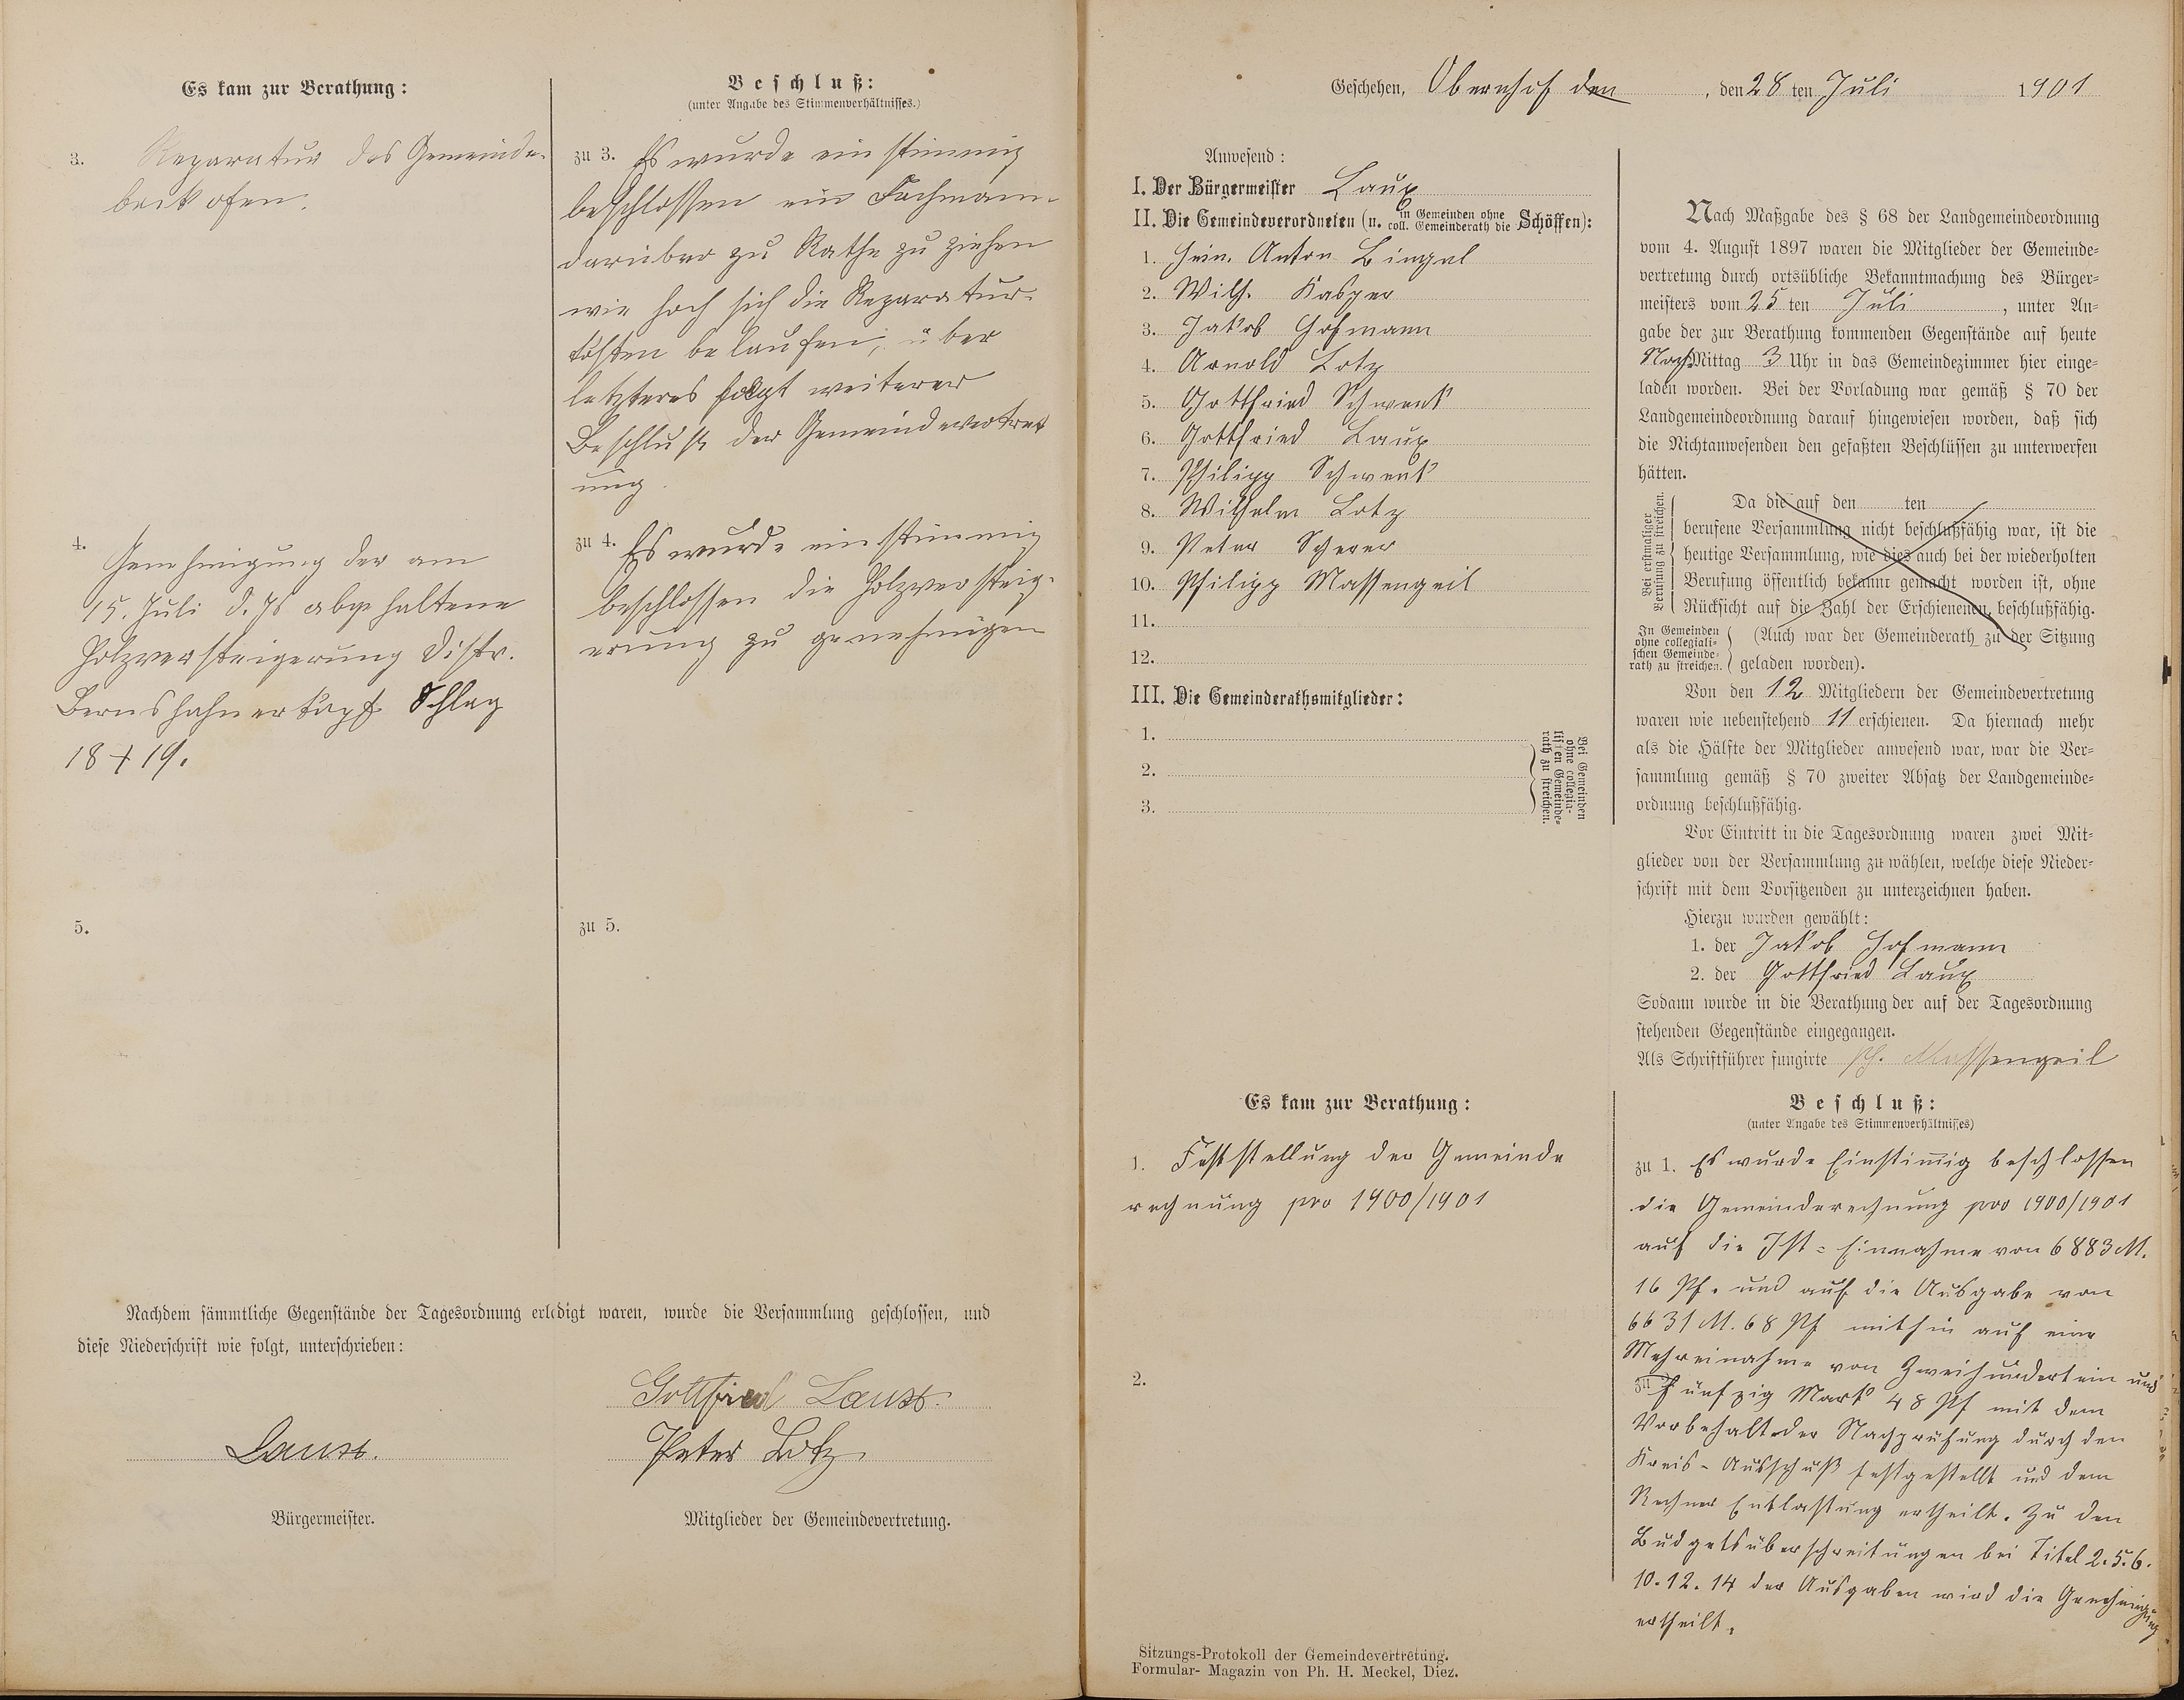 Es kam zur Berathung:
Beschluß:
(unter Angabe des Stimmenverhältnisses.)
3. Reparatur des Gemeinde-
backofen.
zu 3. Es wurde einstimmig
beschlossen ein Fachmann
darüber zu Rathe zu ziehen
wie hoch sich die Reparatur-
kosten belaufen; über
letzteres folgt weiterer
Beschluß der Gemeindevertret
ung.
4. Genehmigung der am
15. Juli d. Js abgehaltene
Holzversteigerung Distr.
Schlag
18 + 19.
zu 4. Es wurde einstimmig
beschlossen die Holzversteig-
erung zu genehmigen
5.
zu 5.
Nachdem sämmtliche Gegenstände der Tagesordnung erledigt waren, wurde die Versammlung geschlossen, und
diese Niederschrift wie folgt, unterschrieben:
Gottfried Laux.
Laux.
Peter Lotz
Bürgermeister.
Mitglieder der Gemeindevertretung.
Geschehen, Obernhof den, den 28 ten Juli 1901
Anwesend:
I. Der Bürgermeister Laux
II. Die Gemeindeverordneten (u. in Gemeinden ohne coll. Gemeinderath die Schöffen):
1. Hein. Anton Bingel
2. Wilh. Kasper
3. Jakob Hofmann
4. Arnold Lotz
5. Gottfried Schwenk
6. Gottfried Laux
7. Philipp Schwenk
8. Wilhelm Lotz
9. Peter Scherer
10. Philipp Massengeil
11.
12.
III. Die Gemeinderathsmitglieder:
1.
2.
3.
Bei Gemeinden
ohne collegia-
lischen Gemeinde-
rath zu streichen.
Nach Maßgabe des § 68 der Landgemeindeordnung
vom 4. August 1897 waren die Mitglieder der Gemeinde-
vertretung durch ortsübliche Bekanntmachung des Bürger-
meisters vom 25 ten Juli, unter An-
gabe der zur Berathung kommenden Gegenstände auf heute
Nach Mittag 3 Uhr in das Gemeindezimmer hier einge-
laden worden. Bei der Vorladung war gemäß § 70 der
Landgemeindeordnung darauf hingewiesen worden, daß sich
die Nichtanwesenden den gefaßten Beschlüssen zu unterwerfen
hätten.
Bei erstmaliger
Berufung zu streichen.
Da die auf den ten
berufene Versammlung nicht beschlußfähig war, ist die
heutige Versammlung, wie dies auch bei der wiederholten
Berufung öffentlich bekannt gemacht worden ist, ohne
Rücksicht auf die Zahl der Erschienenen, beschlußfähig.
In Gemeinden
ohne collegiali-
schen Gemeinde-
rath zu streichen.
(Auch war der Gemeinderath zu der Sitzung
geladen worden).
Von den 12 Mitgliedern der Gemeindevertretung
waren wie nebenstehend 11 erschienen. Da hiernach mehr
als die Hälfte der Mitglieder anwesend war, war die Ver-
sammlung gemäß § 70 zweiter Absatz der Landgemeinde-
ordnung beschlußfähig.
Vor Eintritt in die Tagesordnung waren zwei Mit-
glieder von der Versammlung zu wählen, welche diese Nieder-
schrift mit dem Vorsitzenden zu unterzeichnen haben.
Hierzu wurden gewählt:
1. der Jakob Hofmann
2. der Gottfried Laux
Sodann wurde in die Berathung der auf der Tagesordnung
stehenden Gegenstände eingegangen.
Als Schriftführer fungirte Ph. Massengeil
Es kam zur Berathung:
Beschluß:
(unter Angabe des Stimmenverhältnisses)
1. Feststellung der Gemeinde
rechnung pro 1900/1901
2.
zu 1. Es wurde Einstimig beschlossen
die Gemeinderechnung pro 1900/1901
auf die Ist=Einnahme von 6883 M.
16 Pf. und auf die Ausgabe von
6631 M. 68 Pf mithin auf eine
Mehreinahme von Zweihundertein und
zu fünfzig Mark 48 Pf mit dem
Vorbehalt der Nachprüfung durch den
Kreis-Ausschuß festgestellt und dem
Rechner Entlastung ertheilt. Zu den
Budgetsüberschreitungen bei Titel 2.5.6.
10.12.14 der Ausgaben wird die Genehmigung
ertheilt.
Sitzungs-Protokoll der Gemeindevertretung.
Formular-Magazin von Ph. H. Meckel, Diez.